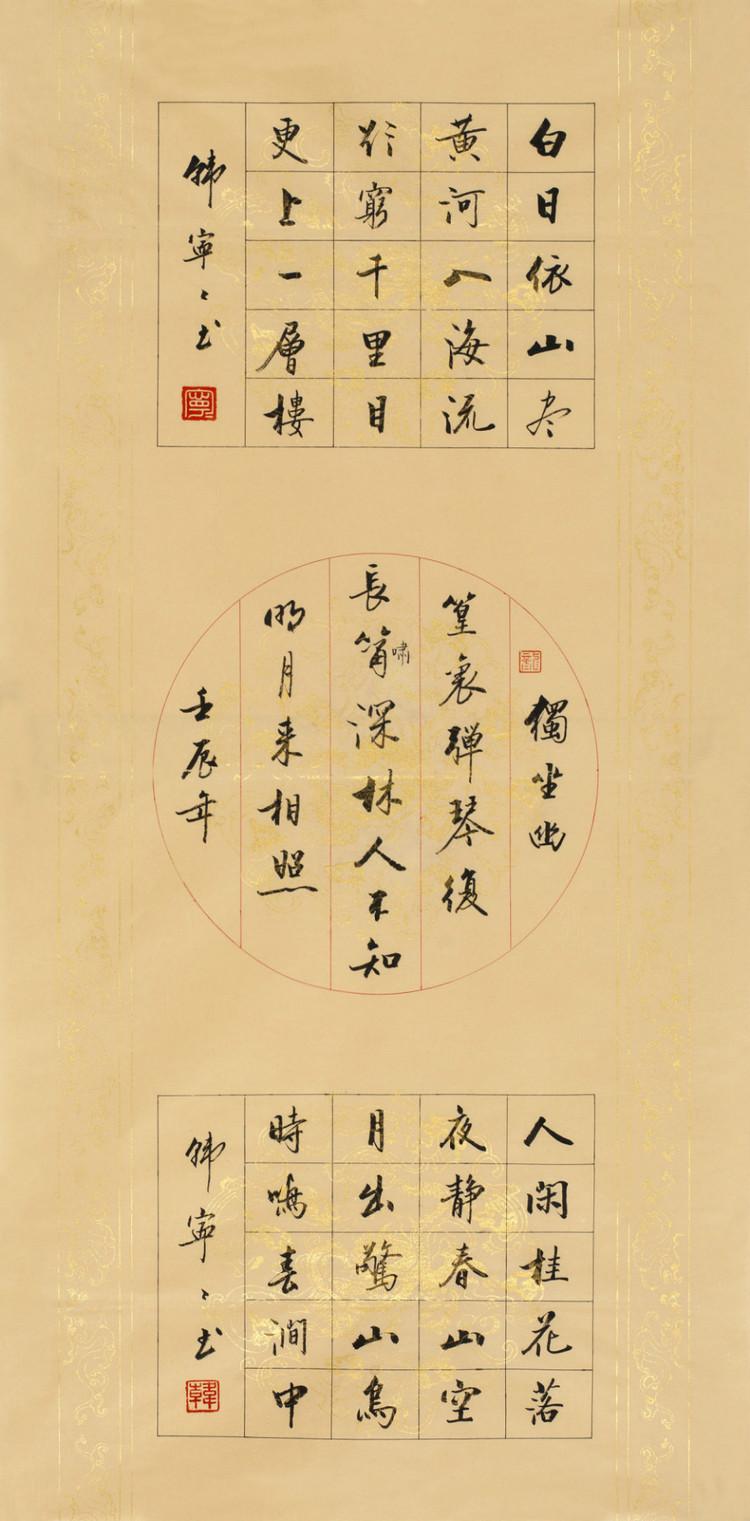 白日依山尽
黄河入海流
欲窮千里目
更上一層樓
韩寧〻书
寧
獨坐幽
篁裏弹琴復
長嘯深林人不知
明月来相照
壬辰年
人閑桂花落
夜静春山空
月出驚山鳥
時鳴春澗中
韩寧〻书
韓